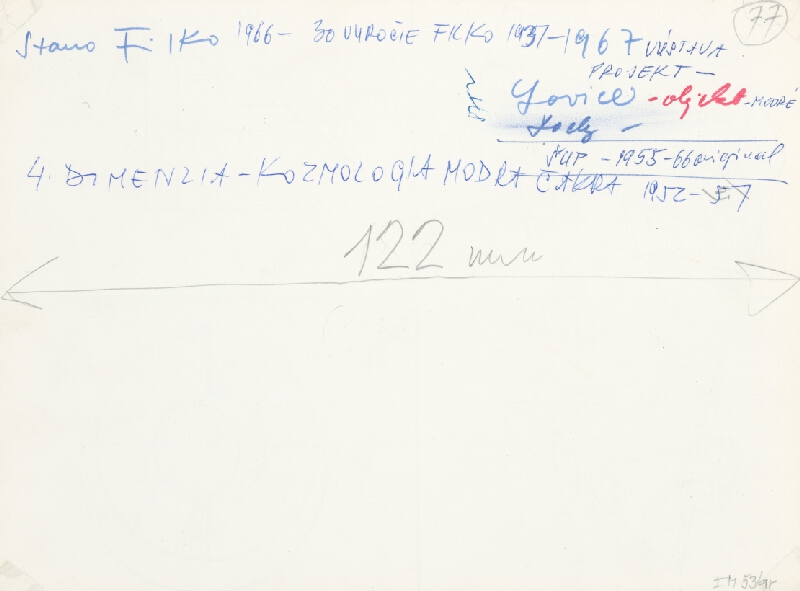 77
Stano Filko 1966 - 30 VÝROČIE FILKO 1937-1967 VÝSTAVA
PROJEKT -
- objekt - MODRÉ
ŠUP - 1955-66 original
4. DIMENZIA - KOZMOLOGIA MODRA ČAKRA 1952-57
122 mm